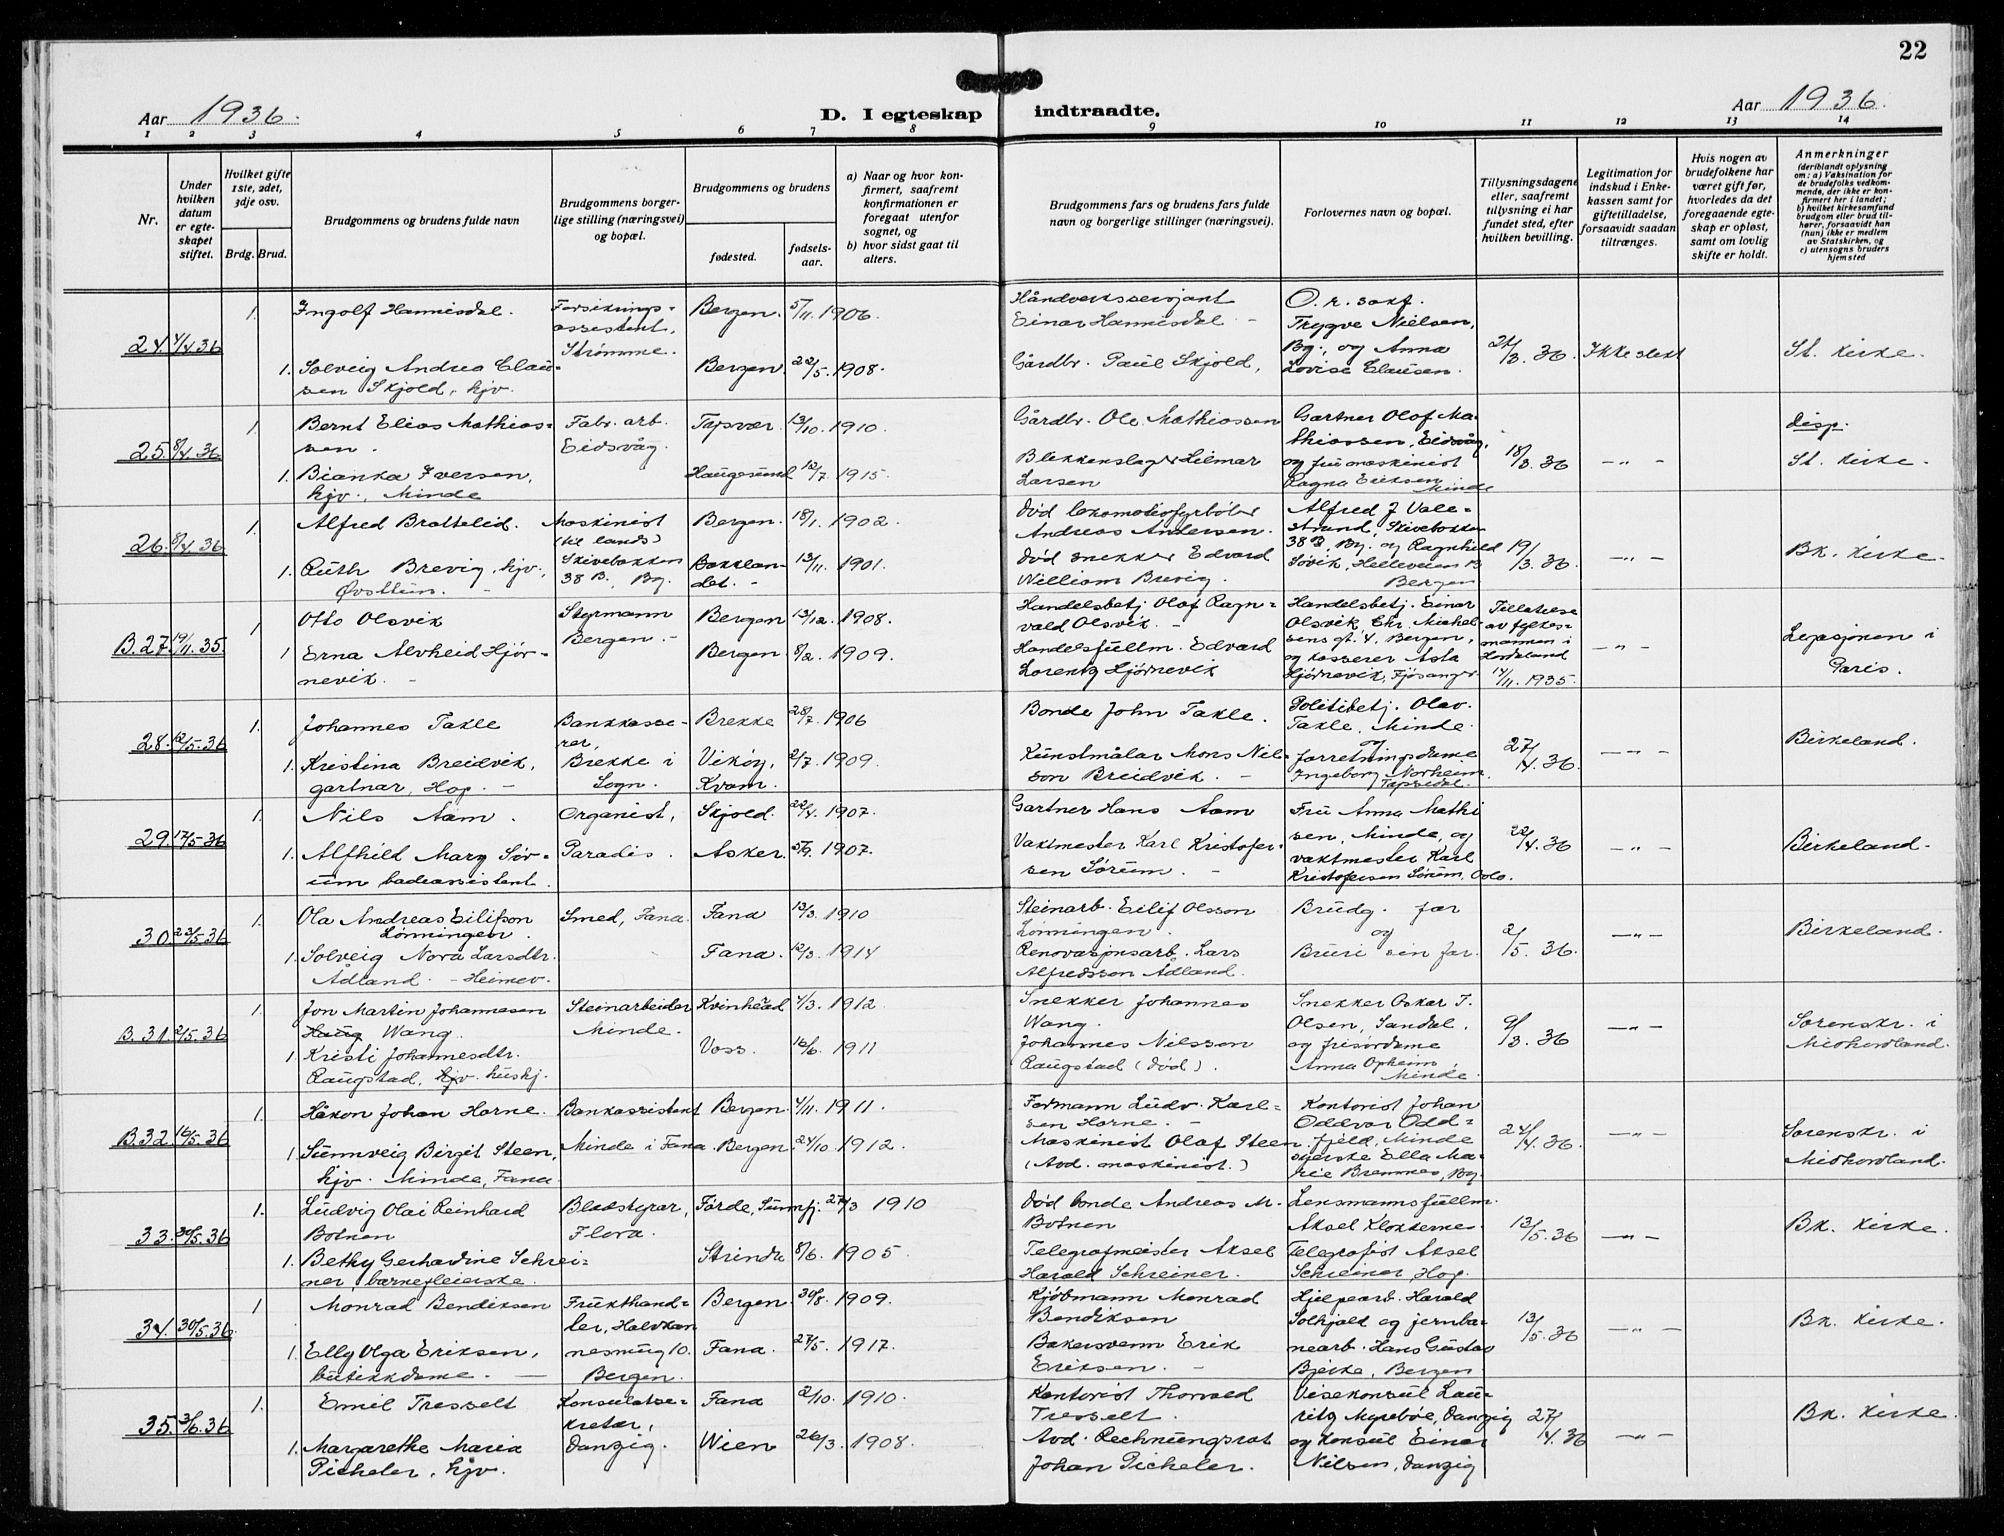 22
Aar 1936.
D. I egteskap indtraadte.
Aar 1936.
1 2 3 4 5 6 7 8 9 10 11 12 13 14
Nr.
Under hvilken datum er egteskapet stiftet.
Hvilket gifte 1ste, 2det, 3dje osv.
Brdg. Brud.
Brudgommens og brudens fulde navn
Brudgommens borger-
lige stilling (næringsvei)
og bopæl.
Brudgommens og brudens
fødested.
fødsels-
aar.
a) Naar og hvor kon-
firmert, saafremt
konfirmationen er
foregaat utenfor
sognet, og
b) hvor sidst gaat til
alters.
Brudgommens fars og brudens fars fulde
navn og borgerlige stillinger (næringsvei).
Forlovernes navn og bopæl.
Tillysningsdagene
eller, saafremt
tillysning ei har
fundet sted, efter
hvilken bevilling.
Legitimation for
indskud i Enke-
kassen samt for
giftetilladelse,
forsaavidt saadan
tiltrænges.
Hvis nogen av
brudefolkene har
været gift før,
hvorledes da det
foregaaende egte-
skap er opløst,
samt om lovlig
skifte er holdt.
Anmerkninger
(deriblandt oplysning
om: a) Vaksination for
de brudefolks vedkom-
mende, der ikke er kon-
firmert her i landet;
b) hvilket kirkesamfund
brudgom eller brud til-
hører, forsaavidt han
(hun) ikke er medlem
av Statskirken, og
c) utensogns bruders
hjemsted
24. 4/4 36
1. Ingolf Hannisdal.
Forsikrings-
assistent,
Strømme.
Bergen. 5/11. 1906.
Håndverkssersjant
Einar Hannisdal -
O.r. sakf.
Trygve Nielsen,
Bg., og Anna
Lovise Clausen.
1. Solveig Andrea Clau-
sen Skjold, hjv.
Bergen. 22/5. 1908.
Gårdbr. Paul Skjold,
3. 36. Ikke slekt St. kirke.
25. 8/4. 36
1. Bernt Elias Mathias-
sen.
Fabr. arb.
Eidsvåg.
Tapsvær. 13/10. 1910.
Gårdbr. Ole Mathiassen
Gartner Olaf Ma-
thiassen, Eidsvåg,
og fru maskinist
Ragna Eriksen
Minde
1. Bianka Iversen,
hjv., Minde
Haugesund 12/7 1915.
Blikkenslager Hilmar
Larsen
18/3. 36 —"— disp.
St. kirke.
26. 8/4. 36
1. Alfred Brattelid.
Maskinist
(til lands)
Skivebakken
38 B., Bg.
Bergen. 18/1. 1902.
død lokomotivfyrbøter
Andreas Andersen.
Alfred J Vale-
strand, Skivebakken
38 B, Bg. og Ragnhild
Søvik, Helleveien 13
Bergen
1. Ruth Brevig, hjv.,
Øvsttun. -
Bakklan-
det. - 13/11. 1901.
død snekker Edvard
William Brevig.
19/3. 36. —"— Bk. kirke.
B. 27. 19/11. 35.
1 Otto Olsvik
Styrmann
Bergen. -
Bergen 13/12. 1908.
Handelsbetj. Olaf Ragn-
vald Olsvik. -
Handelsbetj. Einar
Olsvik Chr. Michel-
sens gt. 4. Bergen,
og kasserer Asta
Hjørnevik, Fjøsanger
1 Erna Alvheid Hjør-
nevik. -
Bergen. 8/2. 1909.
Handelsfullm. Edvard
Lorentz Hjørnevik
Tillatelse
av fylkes-
mannen i
Hordaland
14/11. 1935.
—"— Legasjonen i
Paris.
28. 12/5. 36
1. Johannes Takle
Bankkasse-
rer,
Brekke i
Sogn.
Brekke 28/7. 1906
Bonde John Takle.
Politibetj. Olav
Takle, Minde.
og
forretningsdame
Ingeborg Norheim
1. Kristina Breidvik,
gartnar, Hop. -
Vikøy,
Kvam. 2/7. 1909.
Kunstmålar Mons Nil-
son Breidvik. -
27/4. 36. —"— Birkeland.
29. 17/5. 36
1. Nils Aam.
Organist,
Paradis.
Skjold. 22/4. 1907.
Gartner Hans Aam
Fru Anna Mathi
sen, Minde, og
vaktmester Karl
Kristofersen Sørum, Oslo.
1. Alfhild Mary Sør-
um badeassistent.
Asker. 5/9. 1907.
Vaktmester Karl Kristofer-
sen Sørum. -
22/4. 36 —"— Birkeland.
30. 23/5. 36
1. Ola Andreas Eilifson
Lønningen.
Smed, Fana.
Fana 13/3. 1910
Steinarb. Eilif Olsson
Lønningen.
Brudg. far
og
1. Solveig Nora Larsdtr.
Ådland. - Heimev.
Fana. 12/3. 1914
Renovasjonsarb. Lars
Alfredsson Ådland.
Bruri sin far.
2/5. 36. —"— Birkeland.
B. 31. 2/5. 36
1. Jon Martin Johannesen
Haug Wang.
Steinarbeider
Minde.
Kvinherad 4/3. 1912.
Snekker Johannes
Wang.
Snekker Oskar T.
Olsen, Sandal.
og frisørdame
Anna Opheim,
Minde.
1 Kristi Johannesdtr.
Raugstad, hjv. hushj.
Voss. 16/6. 1911
Johannes Nilsson
Raugstad (død).
9/3. 36 —"— Sorenskr. i
Midhordland.
B. 32. 16/5. 36
1. Håkon Johan Horne.
Bankassistent
Minde i Fana
Bergen. 4/11. 1911.
Formann Ludv. Karl-
sen Horne. -
Kontorist Johan
Oddvar Odd-
fjeld, Minde
syerske Ella Ma-
rie Bremnes, Bg.
1. Sunnveig Birgit Steen,
hjv. Minde, Fana
Bergen. 24/10. 1912.
Maskinist Olaf Steen
(Avd. maskinist.)
24/4. 36 —"— Sorenskr. i
Midhordland.
33. 30/5. 36
1. Ludvig Olai Reinhard
Botnen
Bladstyrar,
Flora.
Førde, Sunnfj. 27/3 1910
død bonde Andreas M.
Botnen
Lensmannsfullm.
Aksel Klokkerne-
Telegrafist Aksel
Schreiner, Hop.
1. Bethy Gerhardine Schrei-
ner, barnepleierske.
Strinda 8/6. 1905.
Telegrafmeister Aksel
Harald Schreiner.
13/5. 36 —"— Bk. kirke.
34. 30/5. 36.
1 Monrad Bendiksen
Frukthand-
ler, Halvkan
nesmug 10.
Bergen.
Bergen 30/8. 1909.
Kjøbmann Monrad
Bendiksen
Hjelpearb. Harald
Solhjold og jernba-
nearb. Hans Gustav
Bjerke, Bergen
1. Elly Olga Eriksen,
butikkdame. -
Fana. 27/5. 1917.
Bakersvenn Erik
Eriksen. -
13/5. 36 —"— Bk. kirke.
35. 3/6. 36
1. Emil Tresselt
Konsulatse-
kretær,
Danzig.
Fana 2/10. 1910.
Kontorist Thorvald
Tresselt.
Visekonsul Lau-
ritz Myrebøe, Danzig
og konsul Einar
Nilsen, Danzig
1. Margarethe Maria
Picheler, hjv.
Wien 26/3. 1908.
Avd. Rechnungsrat
Johan Picheler.
27/4. 36 —"— Bk. kirke.